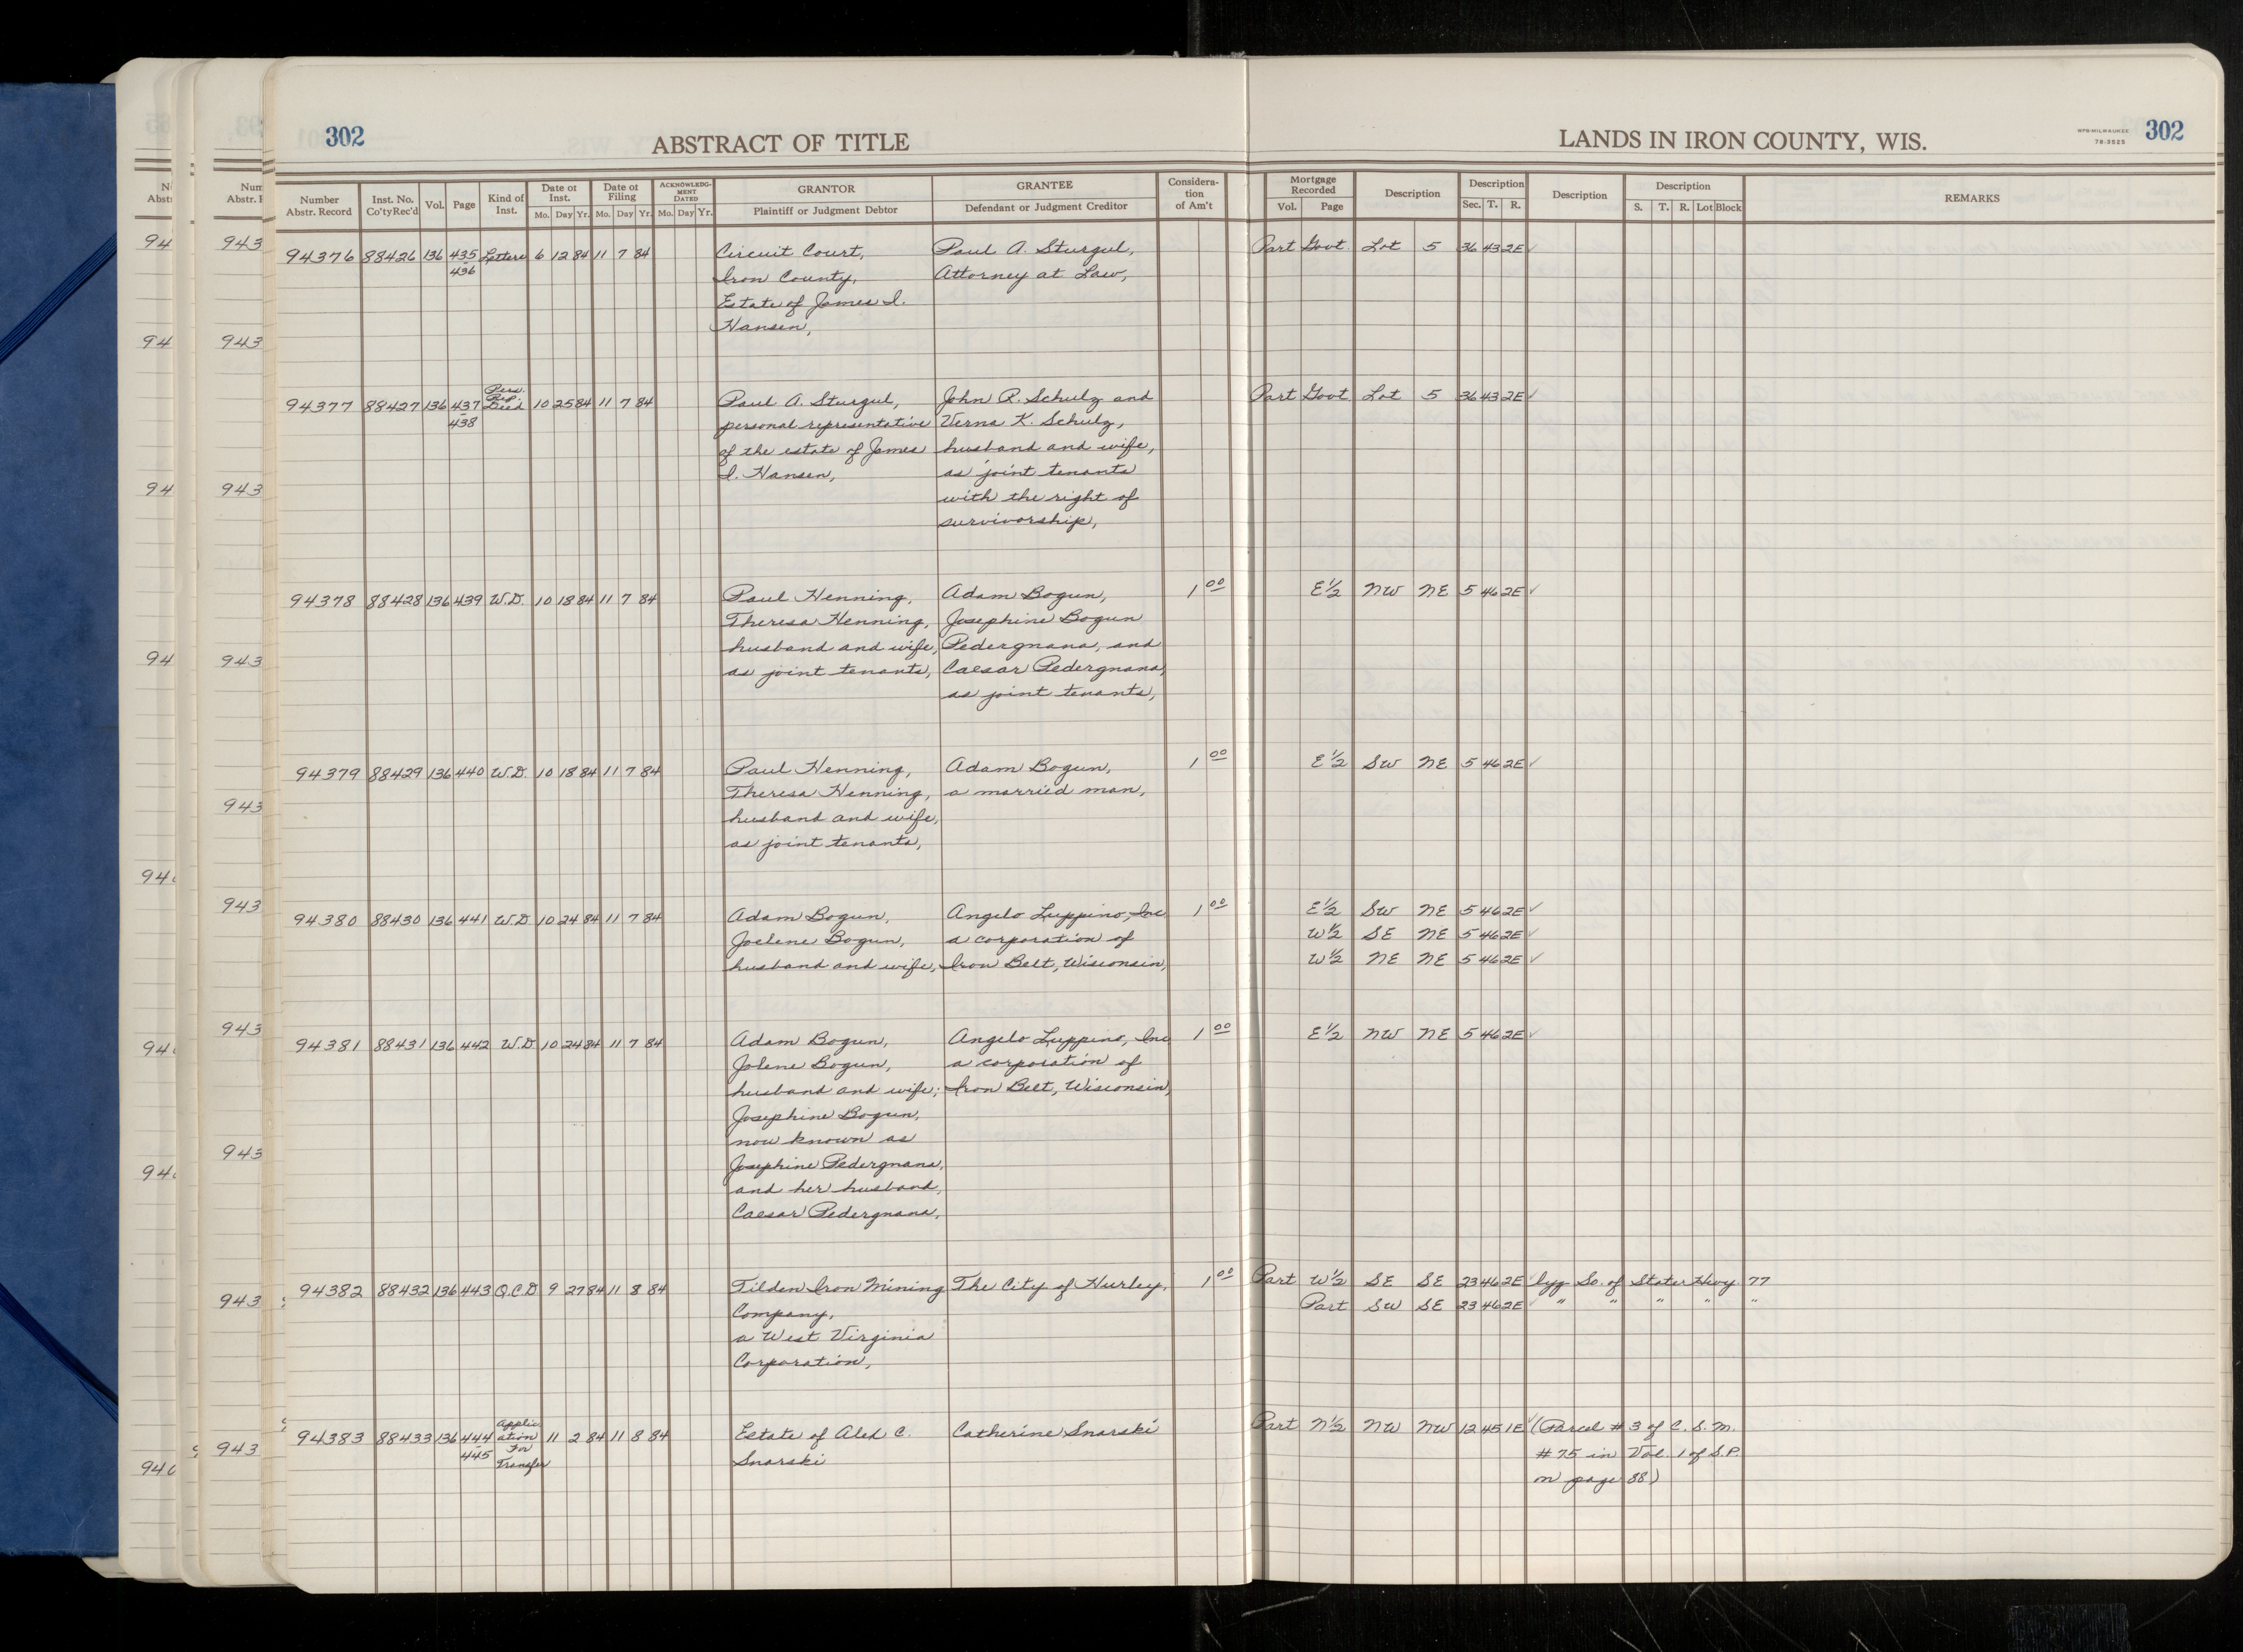 302
ABSTRACT OF TITLE
LANDS IN IRON COUNTY, WIS.
WPB-MILWAUKEE
78-3525
302
Number Abstr. Record Inst. No. Co'tyRec'd Vol. Page Kind of Inst. Date of Inst. Mo. Day Yr. Date of Filing Mo. Day Yr. ACKNOWLEDG-MENT DATED Mo. Day Yr. GRANTOR Plaintiff or Judgment Debtor GRANTEE Defendant or Judgment Creditor Considera-tion of Am't Mortgage Recorded Vol. Page Description Description Sec. T. R. Description Description S. T. R. Lot Block REMARKS
94376 88426 136 435 Letters 6 12 84 11 7 84 Circuit Court, Paul A. Sturgul, Part Govt Lot 5 36 43 2E ✓
436 Iron County, Attorney at Law,
Estate of James I.
Hansen,
94377 88427 136 437 Pers. Rep. Deed 10 25 84 11 7 84 Paul A. Sturgul, John R. Schulz and Part Govt Lot 5 36 43 2E ✓
438 personal representative Verna K. Schulz,
of the estate of James husband and wife,
I. Hansen, as joint tenants
with the right of
survivorship,
94378 88428 136 439 W.D. 10 18 84 11 7 84 Paul Henning, Adam Bogun, 1 00 E½ NW NE 5 46 2E ✓
Theresa Henning, Josephine Bogun
husband and wife, Pedergnana, and
as joint tenants, Caesar Pedergnana,
as joint tenants,
94379 88429 136 440 W.D. 10 18 84 11 7 84 Paul Henning, Adam Bogun, 1 00 E½ SW NE 5 46 2E ✓
Theresa Henning, a married man,
husband and wife,
as joint tenants,
94380 88430 136 441 W.D 10 24 84 11 7 84 Adam Bogun, Angelo Luppino, Inc 1 00 E½ SW NE 5 46 2E ✓
Joelene Bogun, a corporation of W½ SE NE 5 46 2E ✓
husband and wife, Iron Belt, Wisconsin, W½ NE NE 5 46 2E ✓
94381 88431 136 442 W.D 10 24 84 11 7 84 Adam Bogun, Angelo Luppino, Inc 1 00 E½ NW NE 5 46 2E ✓
Jolene Bogun, a corporation of
husband and wife; Iron Belt, Wisconsin,
Josephine Bogun,
now known as
Josephine Pedergnana,
and her husband,
Caesar Pedergnana,
94382 88432 136 443 Q.C.D 9 27 84 11 8 84 Tilden Iron Mining The City of Hurley, 1 00 Part W½ SE SE 23 46 2E ✓ lyg So. of State Hwy 77
Company, Part SW SE 23 46 2E ✓ " " " " "
a West Virginia
Corporation,
94383 88433 136 444 Application For Transfer 11 2 84 11 8 84 Estate of Alex C. Catherine Snarski Part N½ NW NW 12 45 1E ✓ (Parcel # 3 of C. S. M.
445 Snarski # 75 in Vol. 1 of S.P.
on page 88)